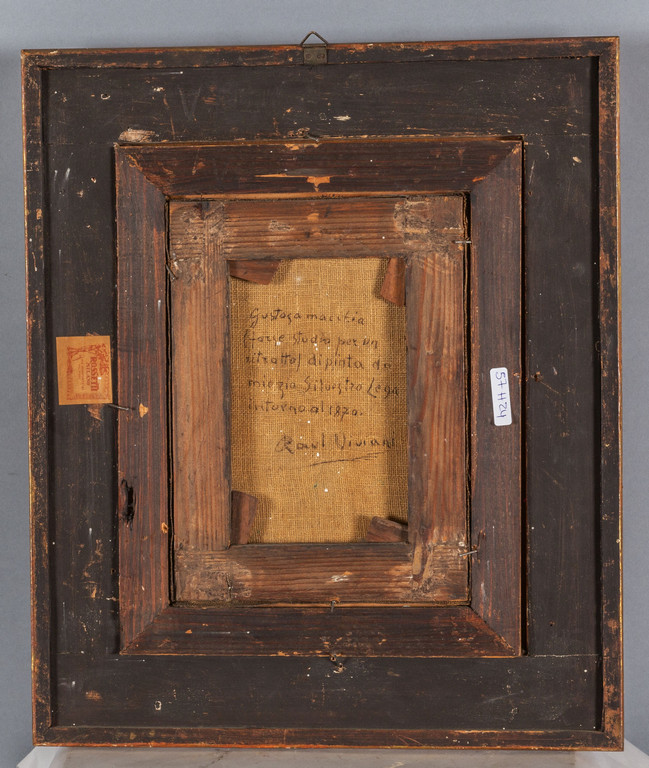 Gustosa macchia
(forse studio per un
ritratto) dipinta da
mio zio Silvestro Lega
intorno al 1870.
Raul Viviani
ROSSETTI
57 H24